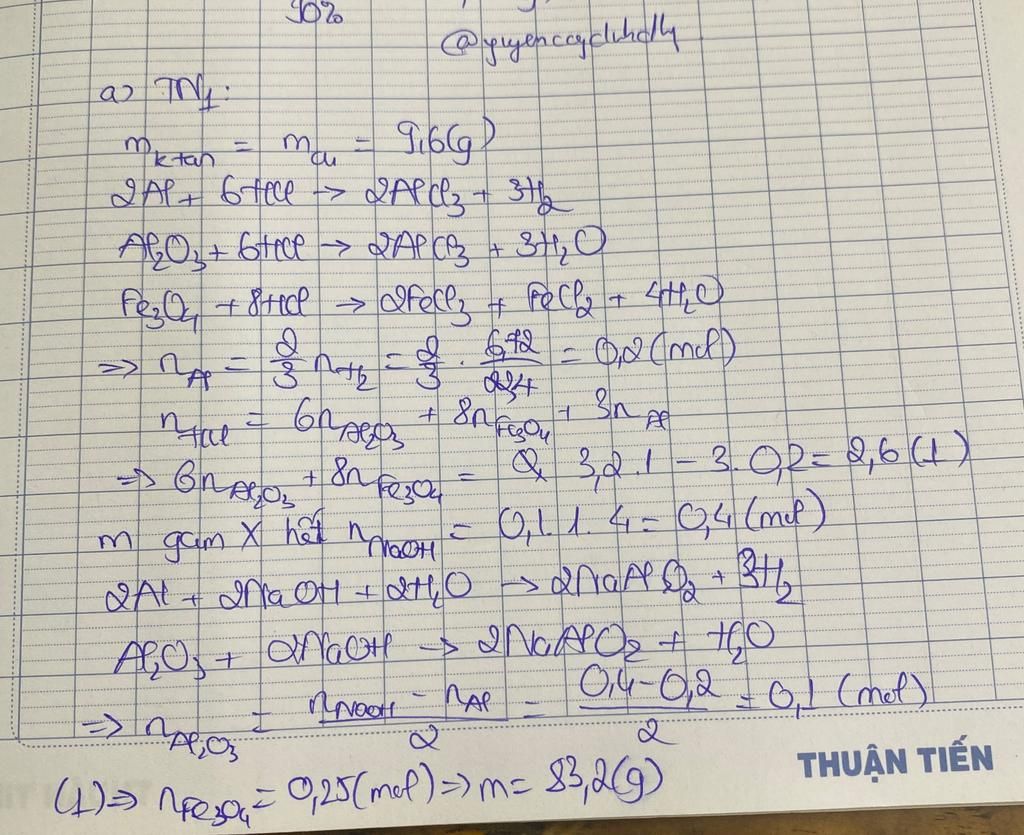 90%
a) TN1:
m k tan = m Cu = 9,6(g)
2Al + 6HCl → 2AlCl3 + 3H2
Al2O3 + 6HCl → 2AlCl3 + 3H2O
Fe3O4 + 8HCl → 2FeCl3 + FeCl2 + 4H2O
=> nAl = 2/3 nH2 = 2/3 . 6,72/22,4 = 0,2 (mol)
nHCl = 6nAl2O3 + 8nFe3O4 + 3nAl
=> 6nAl2O3 + 8nFe3O4 = 3,2.1 - 3.0,2 = 2,6 (1)
m gam X hết nNaOH = 0,1.1.4 = 0,4 (mol)
2Al + 2NaOH + 2H2O → 2NaAlO2 + 3H2
Al2O3 + 2NaOH → 2NaAlO2 + H2O
=> nAl2O3 = (nNaOH - nAl)/2 = (0,4 - 0,2)/2 = 0,1 (mol)
THUẬN TIẾN
(1) => nFe3O4 = 0,25 (mol) => m = 83,2(g)